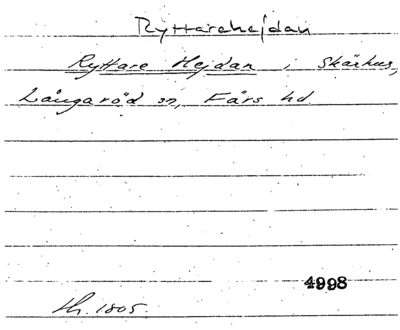 Ryttarehejdan
Ryttare Hejdan i Skärhus,
Långaröd sn, Färs hd
4998
th. 1805.